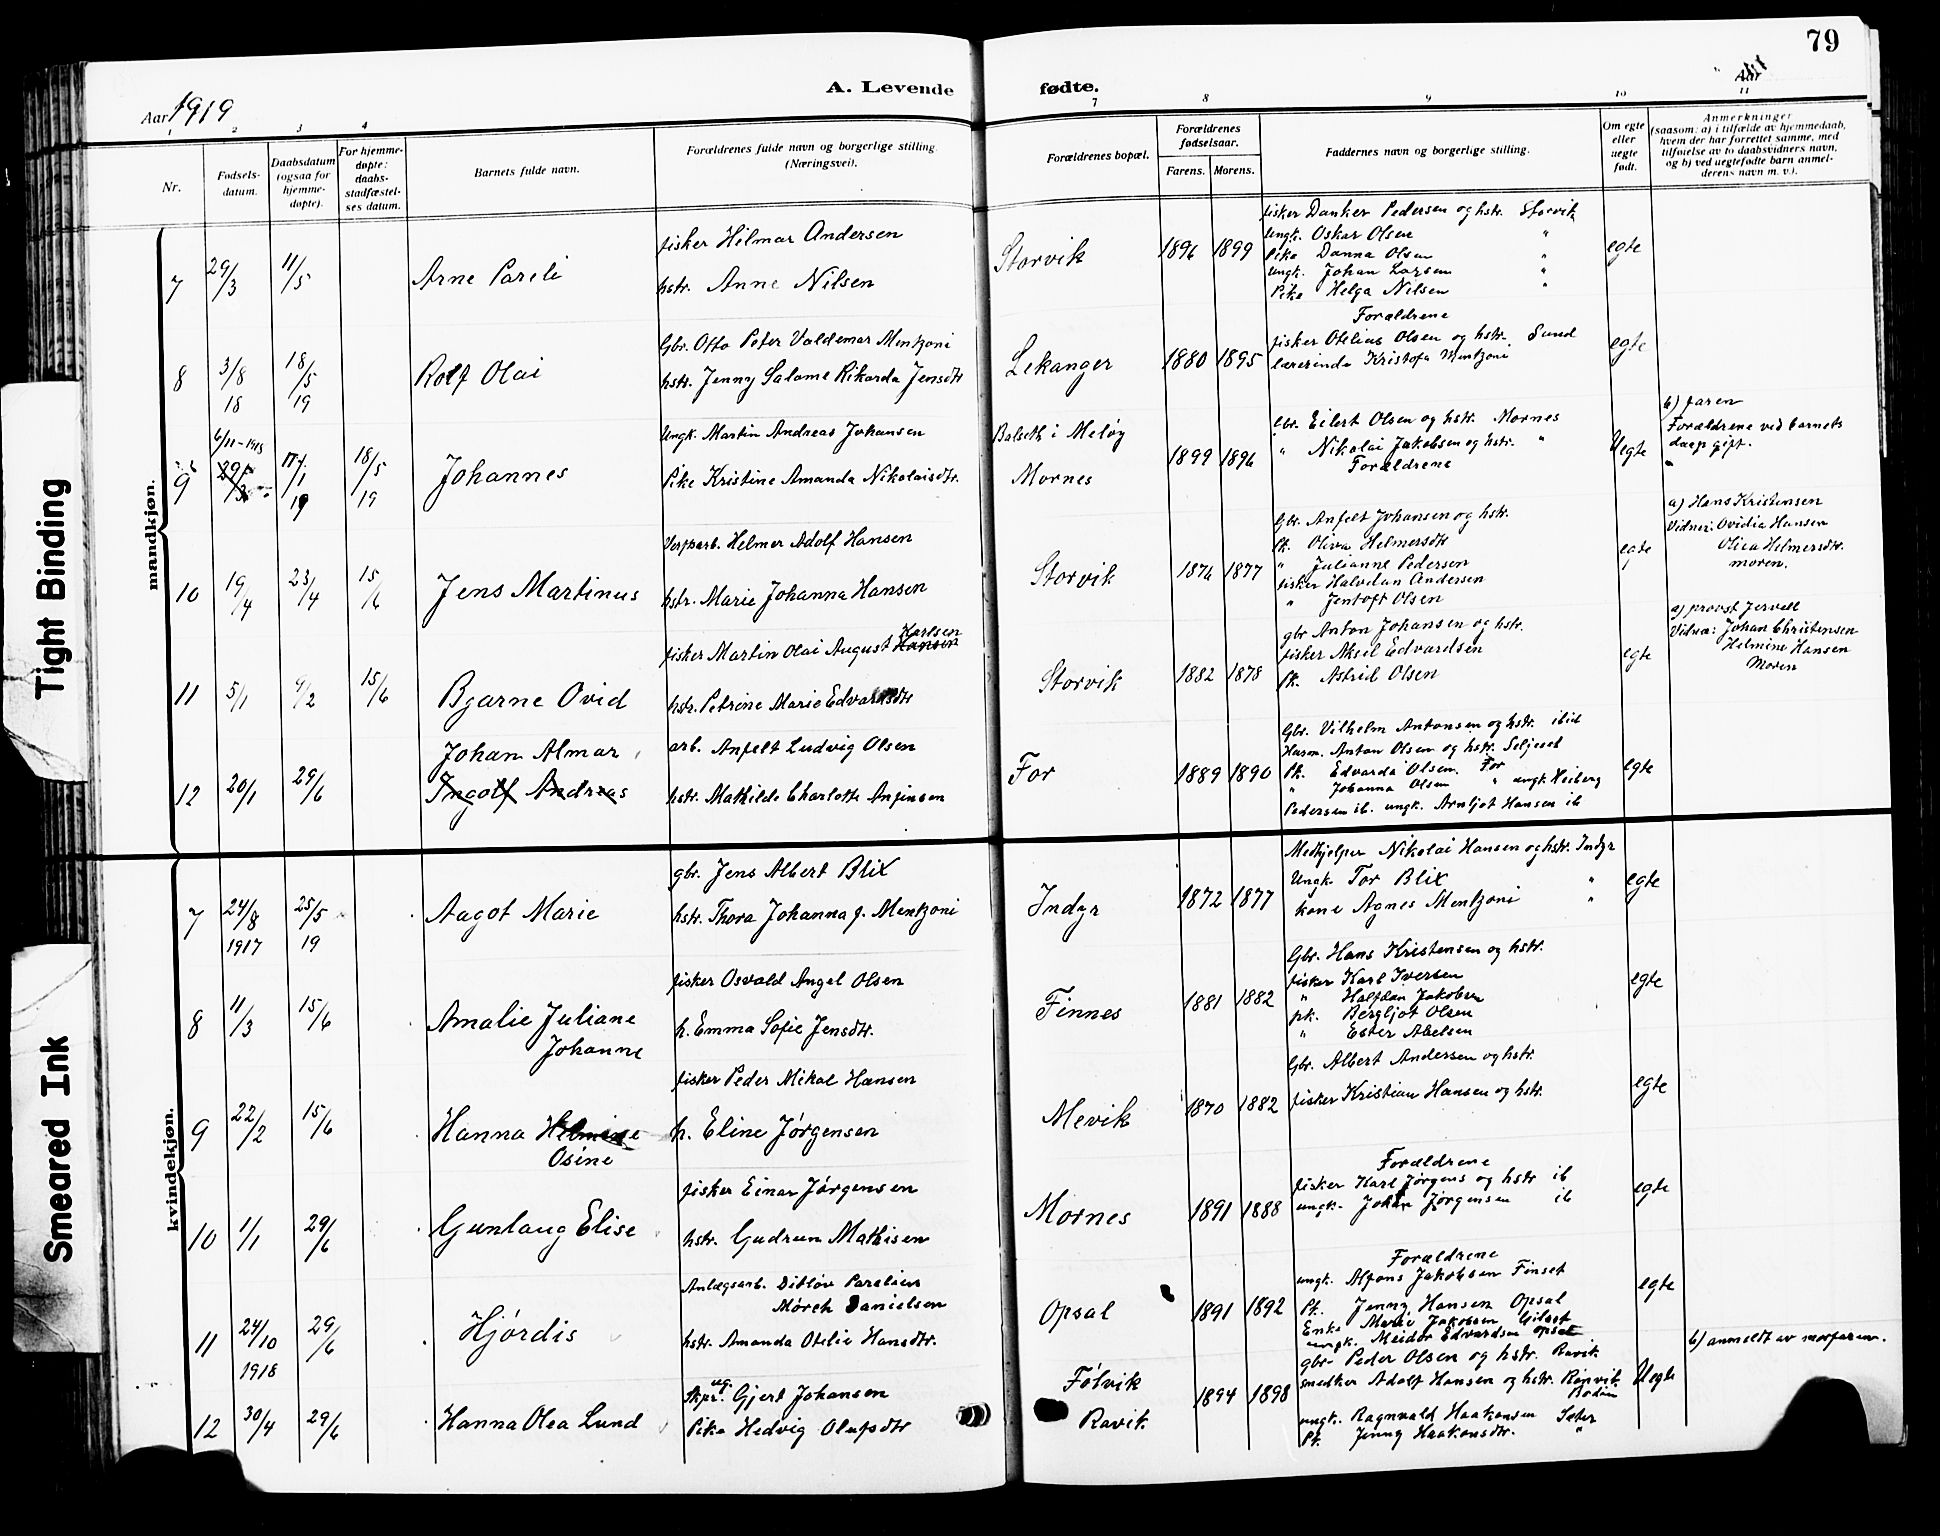 79
A. Levende fødte.
Aar 1919
1 2 3 4 7 8 9 10 11
Nr.
Fødsels-
datum.
Daabsdatum
(ogsaa for
hjemme-
døpte).
For hjemme-
døpte:
daabs-
stadfæstel-
ses datum.
Barnets fulde navn.
Forældrenes fulde navn og borgerlige stilling
(Næringsvei).
Forældrenes bopæl.
Forældrenes
fødselsaar.
Farens. Morens.
Faddernes navn og borgerlige stilling.
Om egte
eller
uegte
født.
Anmerkninger
(saasom: a) i tilfælde av hjemmedaab,
hvem der har forrettet samme, med
tilføielse av to daabsvidners navn,
og b) ved uegtefødte barn anmel-
derens navn m. v.).
mandkjøn.
7 29/3 11/5 Arne Pareli
fisker Hilmar Andersen
hstr. Anne Nilsen
Storvik 1896 1899
fisker Danker Pedersen og hstr. Storvik
Ungk. Oskar Olsen "
Pike Danna Olsen "
ungk. Johan Larsen "
Pike Helga Nilsen "
egte
8 3/8 18 18/5 19 Rolf Olai
Gbr. Otto Peter Valdemar Mentzoni
hstr. Jenny Salome Rikarda Jensdtr
Lekanger 1880 1895
Forældrene
fisker Otelius Olsen og hstr. Sund
lærerinde Kristofa Mentzoni
egte
9 6/11-1918 17/1 19 18/5 19 Johannes
Ungk. Martin Andreas Johansen
Pike Kristine Amanda Nikolaisdtr.
Balseth i Meløy
Mornes
1899 1896
gbr. Eilert Olsen og hstr. Mornes
" Nikolai Jakobsen og hstr. "
Forældrene
Uegte
b) faren
Forældrene ved barnets
daap gift.
10 19/4 23/4 15/6 Jens Martinus
Verftsarb. Helmer Adolf Hansen
hstr. Marie Johanna Hansen
Storvik 1876 1877
Gbr. Anfelt Johansen og hstr.
Pk. Oliva Helmersdtr
" Julianne Pedersen
fisker Halvdan Andersen
" Jentoft Olsen
egte
a) Hans Kristensen
Vidner: Ovidia Hansen
Oliva Helmersdtr.
moren.
11 5/1 9/2 15/6 Bjarne Ovid
fisker Martin Olai August Hansen Karlsen
hstr. Petrine Marie Edvardsdtr
Storvik 1882 1878
gbr Anton Johansen og hstr.
fisker Aksel Edvardsen
Pk. Astrid Olsen
egte
a) provst Jervell
Vidner: Johan Christensen
Helmine Hansen
Moren
12 20/1 29/6 Johan Almar
Ingolf Andreas
arb. Anfelt Ludvig Olsen
hstr. Mathilde Charlotte Anfinsen
For 1889 1890
Gbr. Vilhelm Antonsen og hstr. ibid
Husm. Anton Olsen og hstr. Seljeset
Pk. Edvarda Olsen. For
" Johanna Olsen " ungk. Heiberg
Pedersen ib. ungk. Arnljot Hansen ib
egte
kvindekjøn.
7 24/8 1917 25/5 19 Aagot Marie
gbr. Jens Albert Blix
hstr. Thora Johanna f. Mentzoni
Indyr 1872 1877
Medhjelper Nikolai Hansen og hstr. Indyr
Ungk. Tor Blix "
kone Agnes Mentzoni "
egte
8 11/3 15/6 Amalie Juliane
Johanne
fisker Osvald Angel Olsen
h. Emma Sofie Jensdtr.
Finnes 1881 1882
Gbr. Hans Kristensen og hstr.
fisker Karl Iversen
" Halfdan Jakobsen
pk. Bergljot Olsen
" Ester Abelsen
egte
9 22/2 15/6 Hanna Helmine
Osine
fisker Peder Mikal Hansen
h. Eline Jørgensen
Mevik 1870 1882
Gbr. Albert Andersen og hstr.
fisker Kristian Hansen og hstr.
egte
10 1/1 29/6 Gunlaug Elise
fisker Einar Jørgensen
hstr. Gudrun Mathisen
Mornes 1891 1888
Forældrene
fisker Karl Jørgens og hstr ib
ungk. Johan Jørgensen ib
egte
11 24/10 1918 29/6 Hjørdis
Anlægsarb. Ditlov Parelius
Mørch Danielsen
hstr. Amanda Otelie Hansdtr.
Opsal 1891 1892
Forældrene
ungk. Alfons Jakobsen Finset
Pk. Jenny Hansen Opsal
Enke Marie Jakobsen Gilset
ungk. Meidor Edvardsen Opsal
egte
12 30/4 29/6 Hanna Olea Lund
Skpr. ug. Gjert Johansen
Pike Hedvig Olufsdtr
Følvik
Ravik
1894 1898
gbr Peder Olsen og hstr. Ravik
smedker Adolf Hansen og hstr. Rønvik
Bodin
ungk. Ragnvald Haakonsen Seter
Pk. Jenny Haakonsdtr. "
Uegte
b) anmeldt av morfaren.
Tight Binding
Smeared Ink